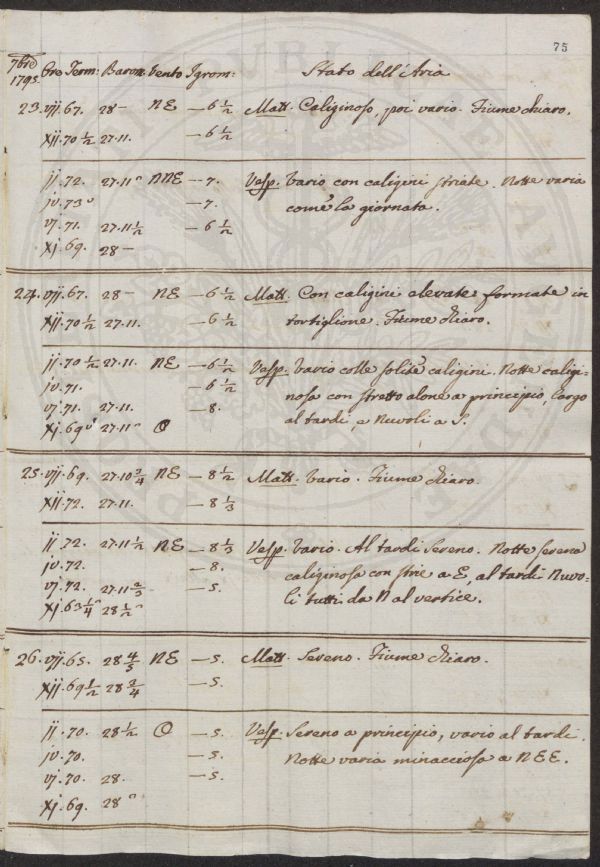 75
7bre 1795. Ore Term: Barom: Vento Igrom: Stato dell'Aria
23. vij. 67. 28 – NE – 6 1/2 Matt. Caliginoso, poi vario. Fiume chiaro.
xij. 70 1/2 27.11. – 6 1/2
ij. 72. 27.11 NNE – 7. Vesp. Vario con caligini striate. Notte varia
iv. 73 – 7. come la giornata.
vj. 71. 27.11 1/2 – 6 1/2
xj. 69. 28 –
24. vij. 67. 28 – NE – 6 1/2 Matt. Con caligini elevate formate in
xij. 70 1/2 27.11. – 6 1/2 tortiglione. Fiume chiaro.
ij. 70 1/2 27.11. NE – 6 1/2 Vesp. Vario colle solite caligini. Notte caligi-
iv. 71. – 6 1/2 nosa con stretto alone a principio, largo
vj. 71. 27.11. – 8. al tardi, e Nuvoli a S.
xj. 69 27.11
25. vij. 69. 27.10 3/4 NE – 8 1/2 Matt. Vario. Fiume chiaro.
xij. 72. 27.11. – 8 1/3
ij. 72. 27.11 1/2 NE – 8 1/3 Vesp. Vario. Al tardi Sereno. Notte serena
iv. 72. – 8. caliginosa con strie a E, al tardi Nuvo-
vj. 72. 27.11 2/3 – 5. li tutti da N al vertice.
xj. 63 1/4 28 1/2
26. vij. 65. 28 4/5 NE – 5. Matt. Sereno. Fiume chiaro.
xij. 69 1/2 28 3/4 – 5.
ij. 70. 28 1/2 O – 5. Vesp. Sereno a principio, vario al tardi.
iv. 70. – 5. Notte varia minacciosa a NEE.
vj. 70. 28. – 5.
xj. 69. 28